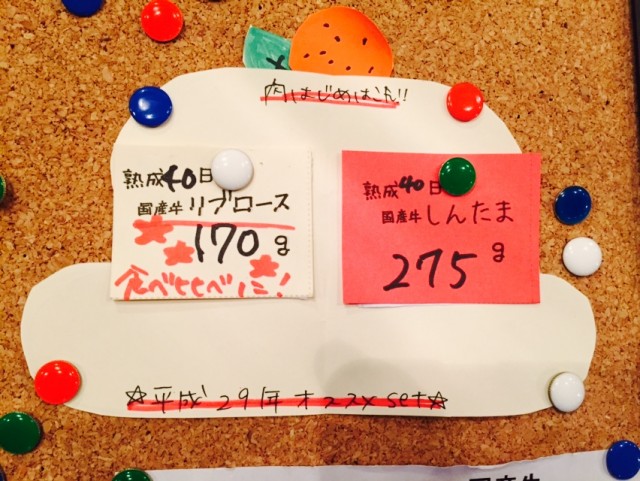 肉はじめはん!!
熟成40日
国産牛リブロース
170g
食べ比べに!
熟成40日
国産牛しんたま
275g
☆平成29年オススメset☆
国産牛